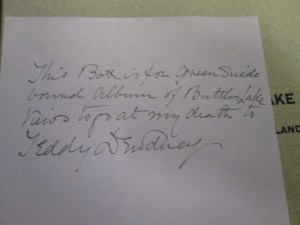 This Box is for Green Suede
bound Album of Butes Lake
Views to go at my death to
Teddy Dewdney
AKE
LAND